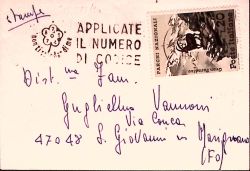 stampe
APPLICATE
IL NUMERO
DI CODICE
PARCHI NAZIONALI
Poste Italiane
Dist.ma Fam.
Guglielmo Vannoni
Via Conca
47048 S. Giovanni in Marignano
(Fo)